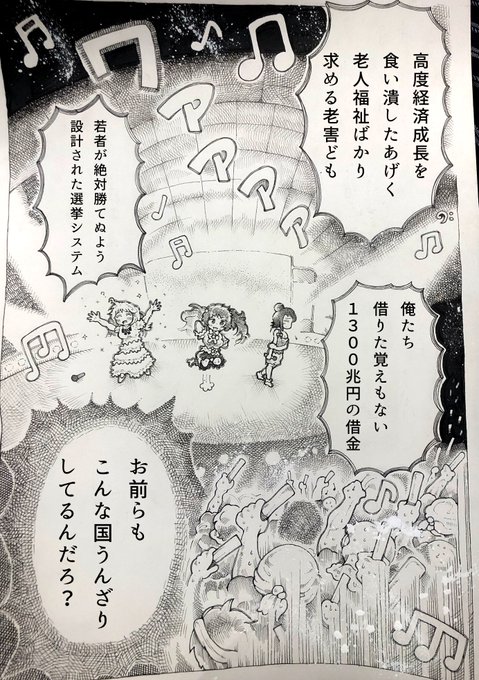 高度経済成長を
食い潰したあげく
老人福祉ばかり
求める老害ども
ワァァァァ
若者が絶対勝てぬよう
設計された選挙システム
俺たち
借りた覚えもない
1300兆円の借金
お前らも
こんな国うんざり
してるんだろ？